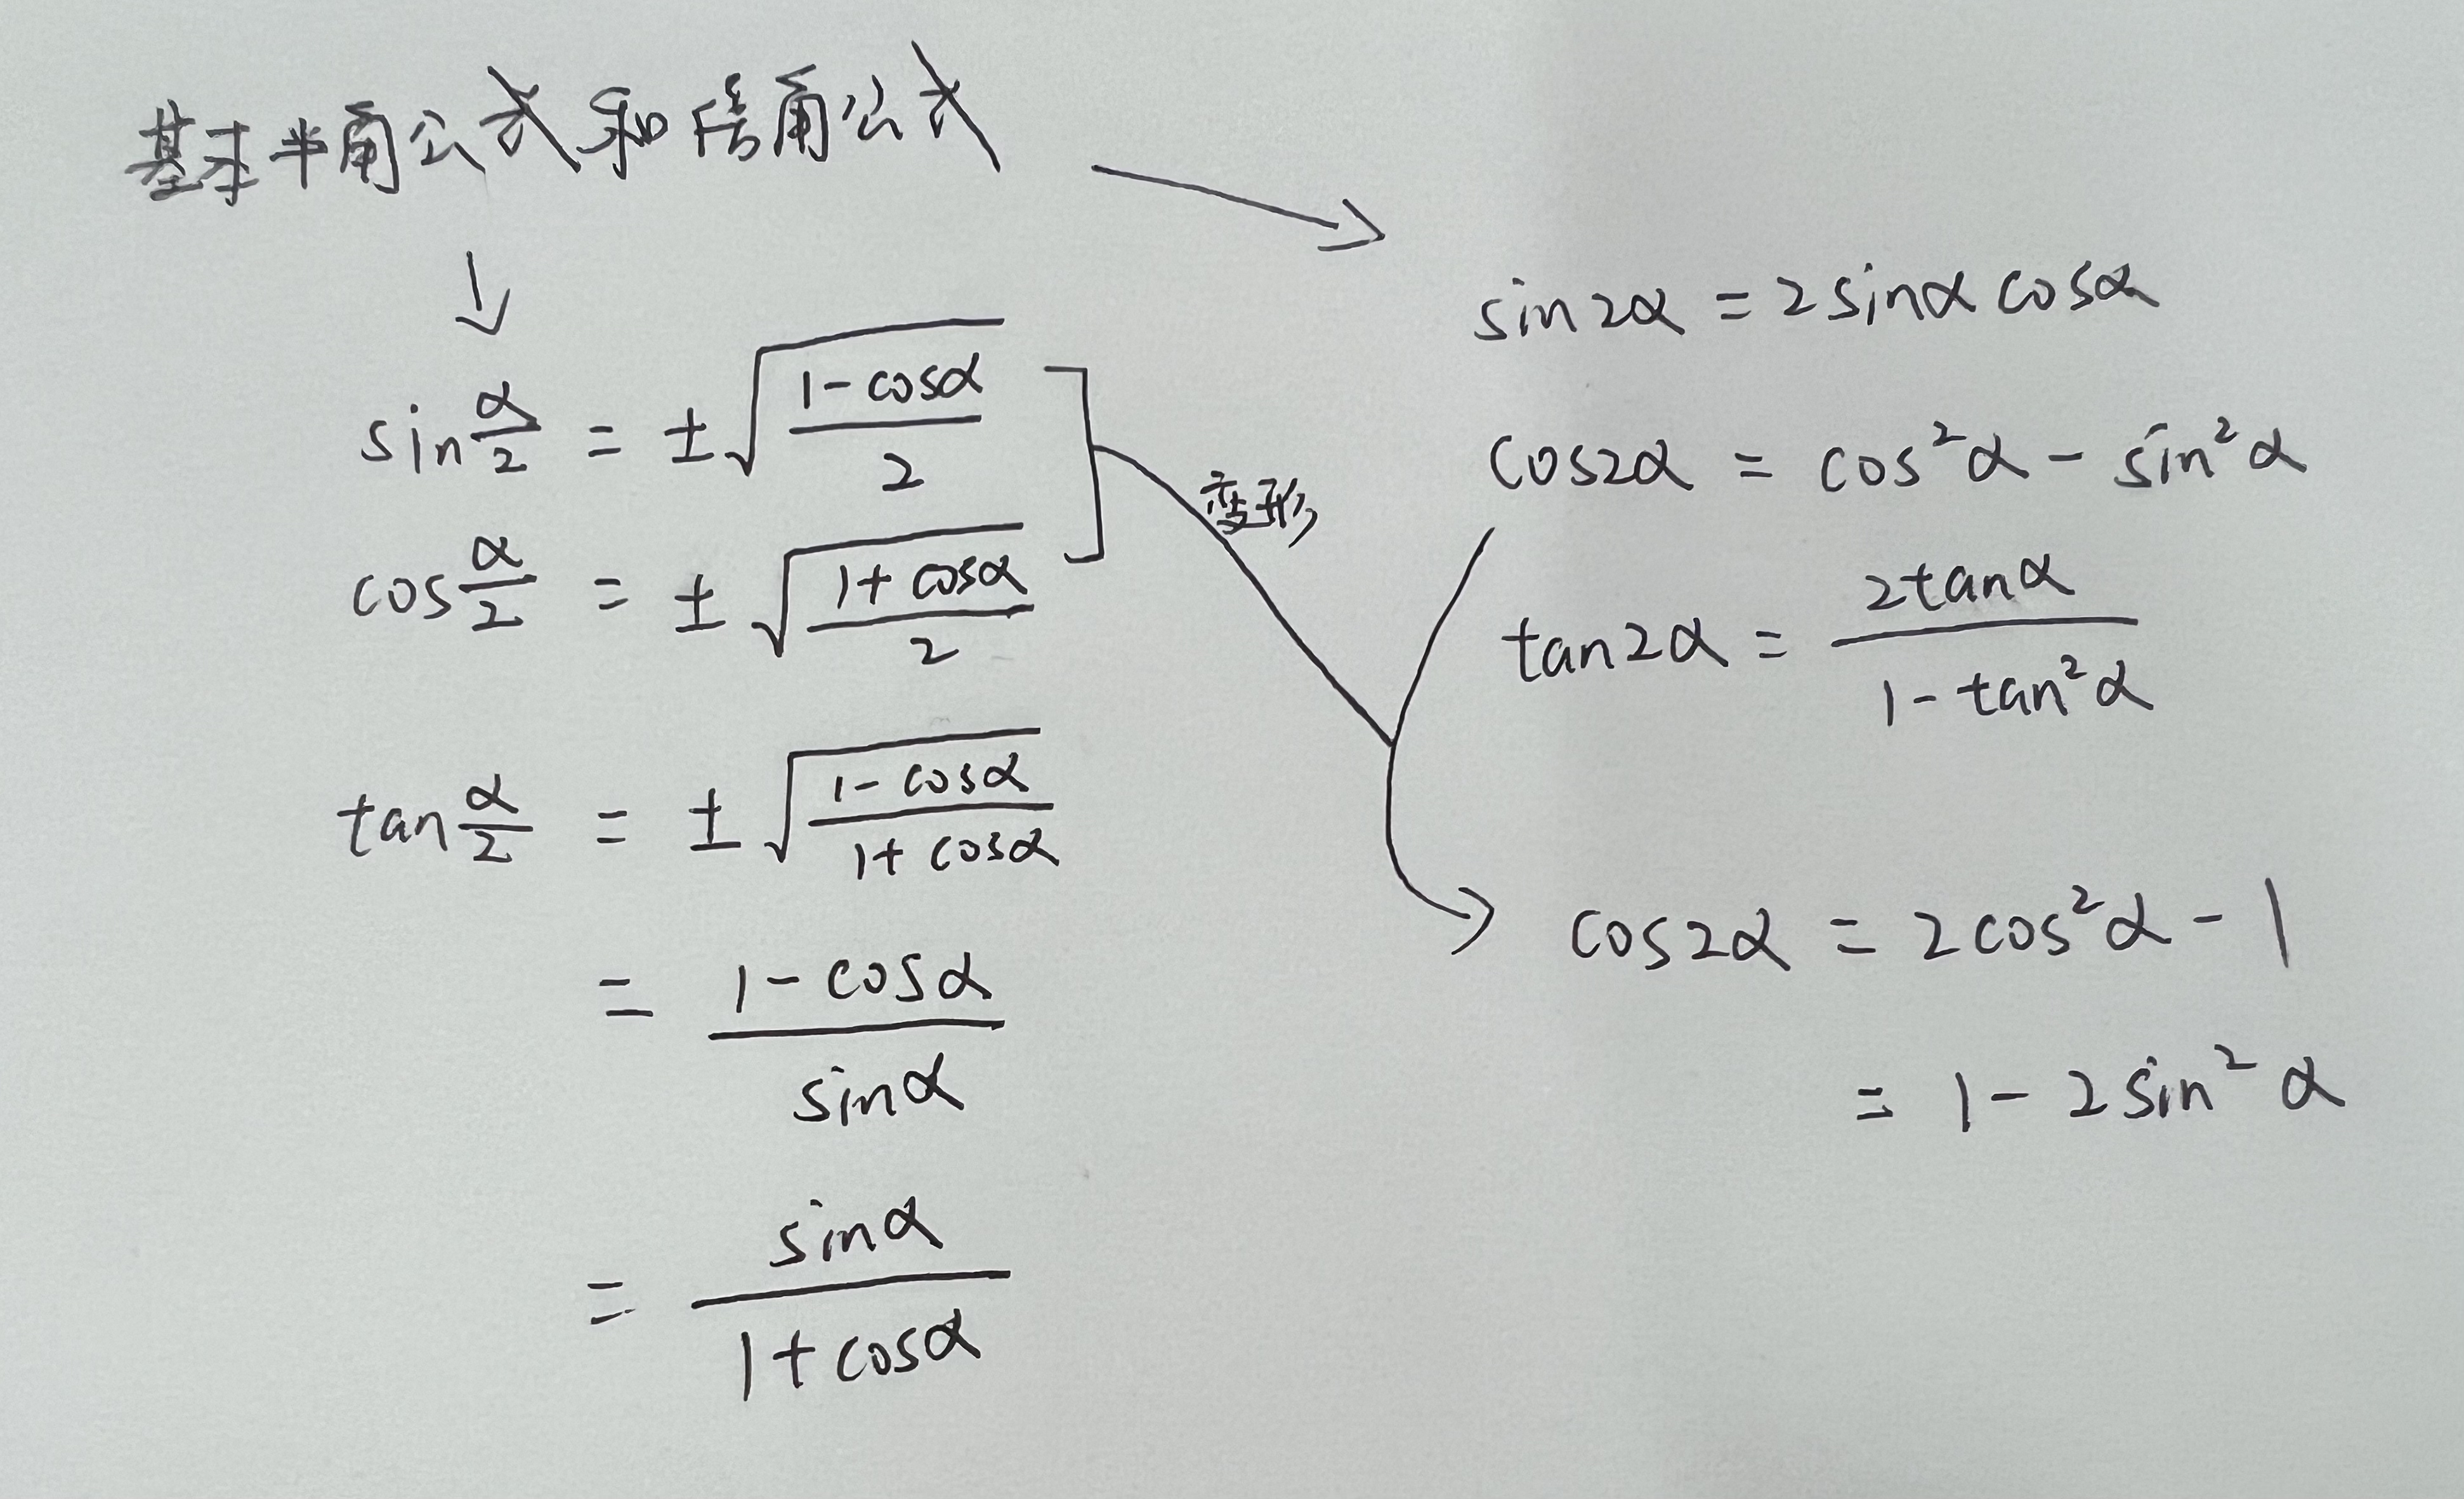 基本半角公式和倍角公式
sin α/2 = ±√((1-cosα)/2)
cos α/2 = ±√((1+cosα)/2)
tan α/2 = ±√((1-cosα)/(1+cosα))
= (1-cosα)/sinα
= sinα/(1+cosα)
变形
sin2α = 2sinα cosα
cos2α = cos²α - sin²α
tan2α = 2tanα/(1-tan²α)
cos2α = 2cos²α - 1
= 1 - 2sin²α